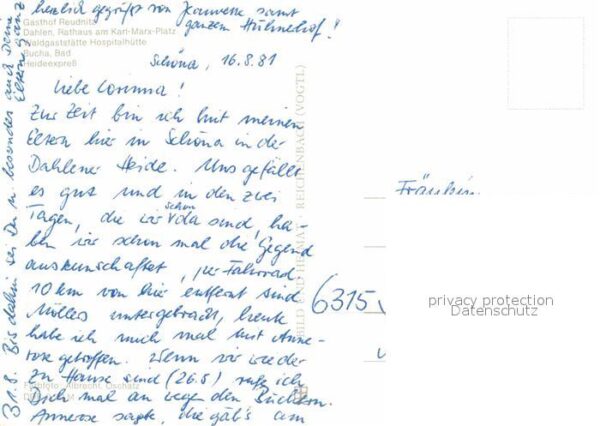 Gasthof Reudnitz
Dahlen, Rathaus am Karl-Marx-Platz
Waldgaststätte Hospitalhütte
Bucha, Bad
Heideexpreß
Schöna, 16.8.81
Liebe Corinna!
Zur Zeit bin ich mit meinen
Eltern hier in Schöna in der
Dahlener Heide. Uns gefällt
es gut und in den zwei
Tagen, die wir schon da sind, ha-
ben wir schon mal die Gegend
auskundschaftet, per Fahrrad.
10 km von hier entfernt sind
Möllers untergebracht, heute
habe ich mich mal mit Anne-
rose getroffen. Wenn wir wieder
zu Hause sind (26.8) rufe ich
Dich mal an wegen den Büchern.
Annerose sagte, die gäb's am
31.8. Bis dahin sei Du u. besonders auch Deine
Eltern ganz
herzlich gegrüßt von Jeannette samt
ganzem Hühnerhof!
BILD UND HEIMAT REICHENBACH (VOGTL)
Fräulein
6315
privacy protection
Datenschutz